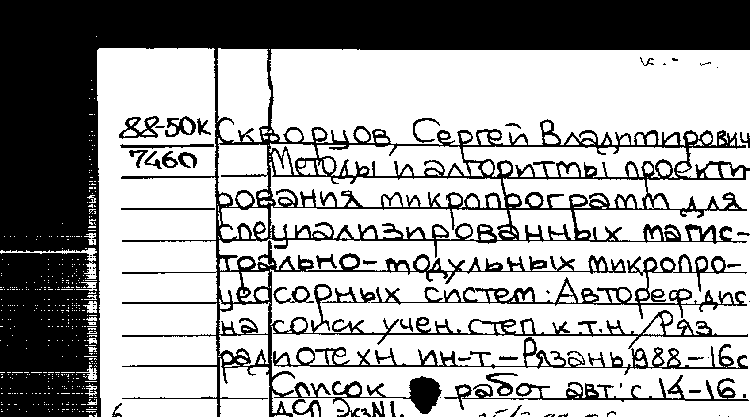 88-50К Скворцов, Сергей Владимирович
7460 Методы и алгоритмы проекти-
рования микропрограмм для
специализированных магис-
трально-модульных микропро-
цессорных систем: Автореф. дис
на соиск учен. степ. к.т.н. / Ряз.
радиотехн. ин-т. – Рязань, 1988. – 16с
Список работ авт.: с. 14-16.
ДСП Экз№1.